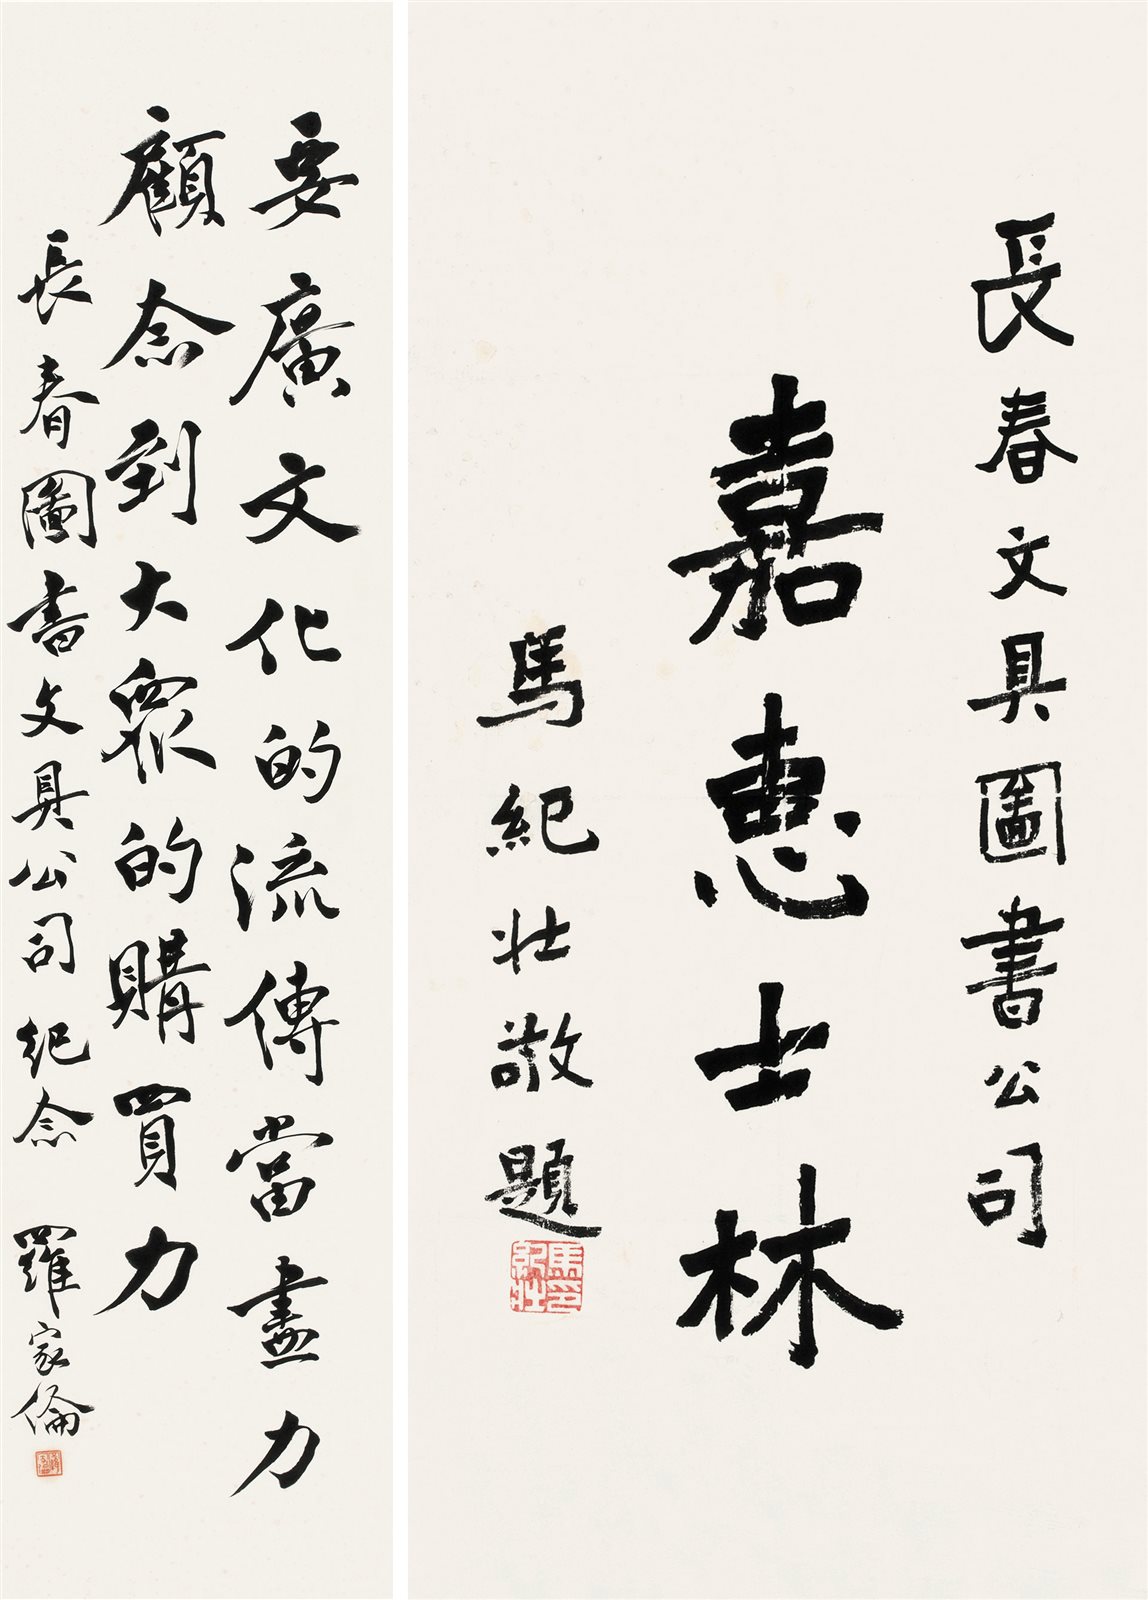 長春文具圖書公司
嘉惠士林
馬紀壯敬題
馬紀壯印
要廣文化的流傳當盡力
顧念到大眾的購買力
長春圖書文具公司紀念 羅家倫